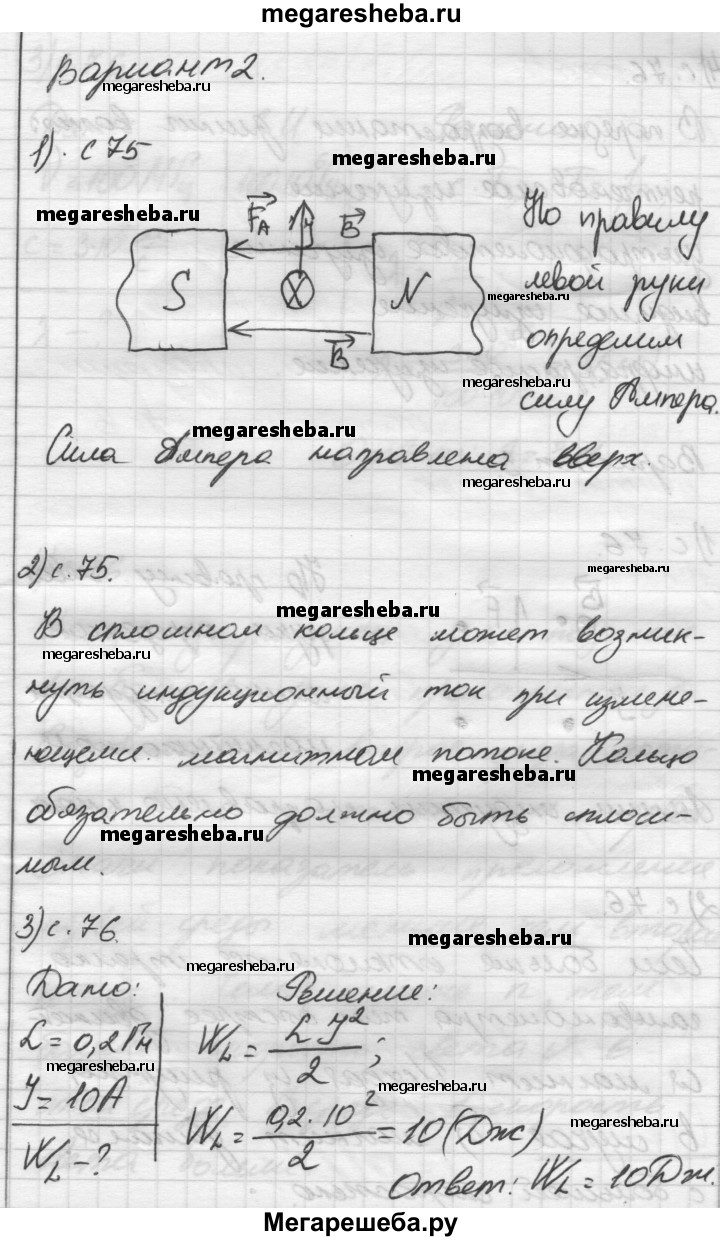 megaresheba.ru
Вариант 2.
megaresheba.ru
1). с 75
megaresheba.ru
megaresheba.ru
F_A
B
По правилу
S
N
левой руки
megaresheba.ru
B
определим
megaresheba.ru
силу Ампера.
megaresheba.ru
Сила Ампера направлена вверх.
megaresheba.ru
2) с. 75.
megaresheba.ru
megaresheba.ru
В сплошном кольце может возник-
megaresheba.ru
нуть индукционный ток при измене-
ющемся магнитном потоке. Кольцо
megaresheba.ru
обязательно должно быть сплош-
megaresheba.ru
ным.
3) с. 76.
megaresheba.ru
megaresheba.ru
Дано: Решение:
L = 0,2 Гн W_L = LI²/2;
megaresheba.ru
I = 10А
megaresheba.ru
W_L = 0,2·10²/2 = 10 (Дж)
megaresheba.ru
W_L - ?
Ответ: W_L = 10 Дж.
megaresheba.ru
Мегарешеба.ру